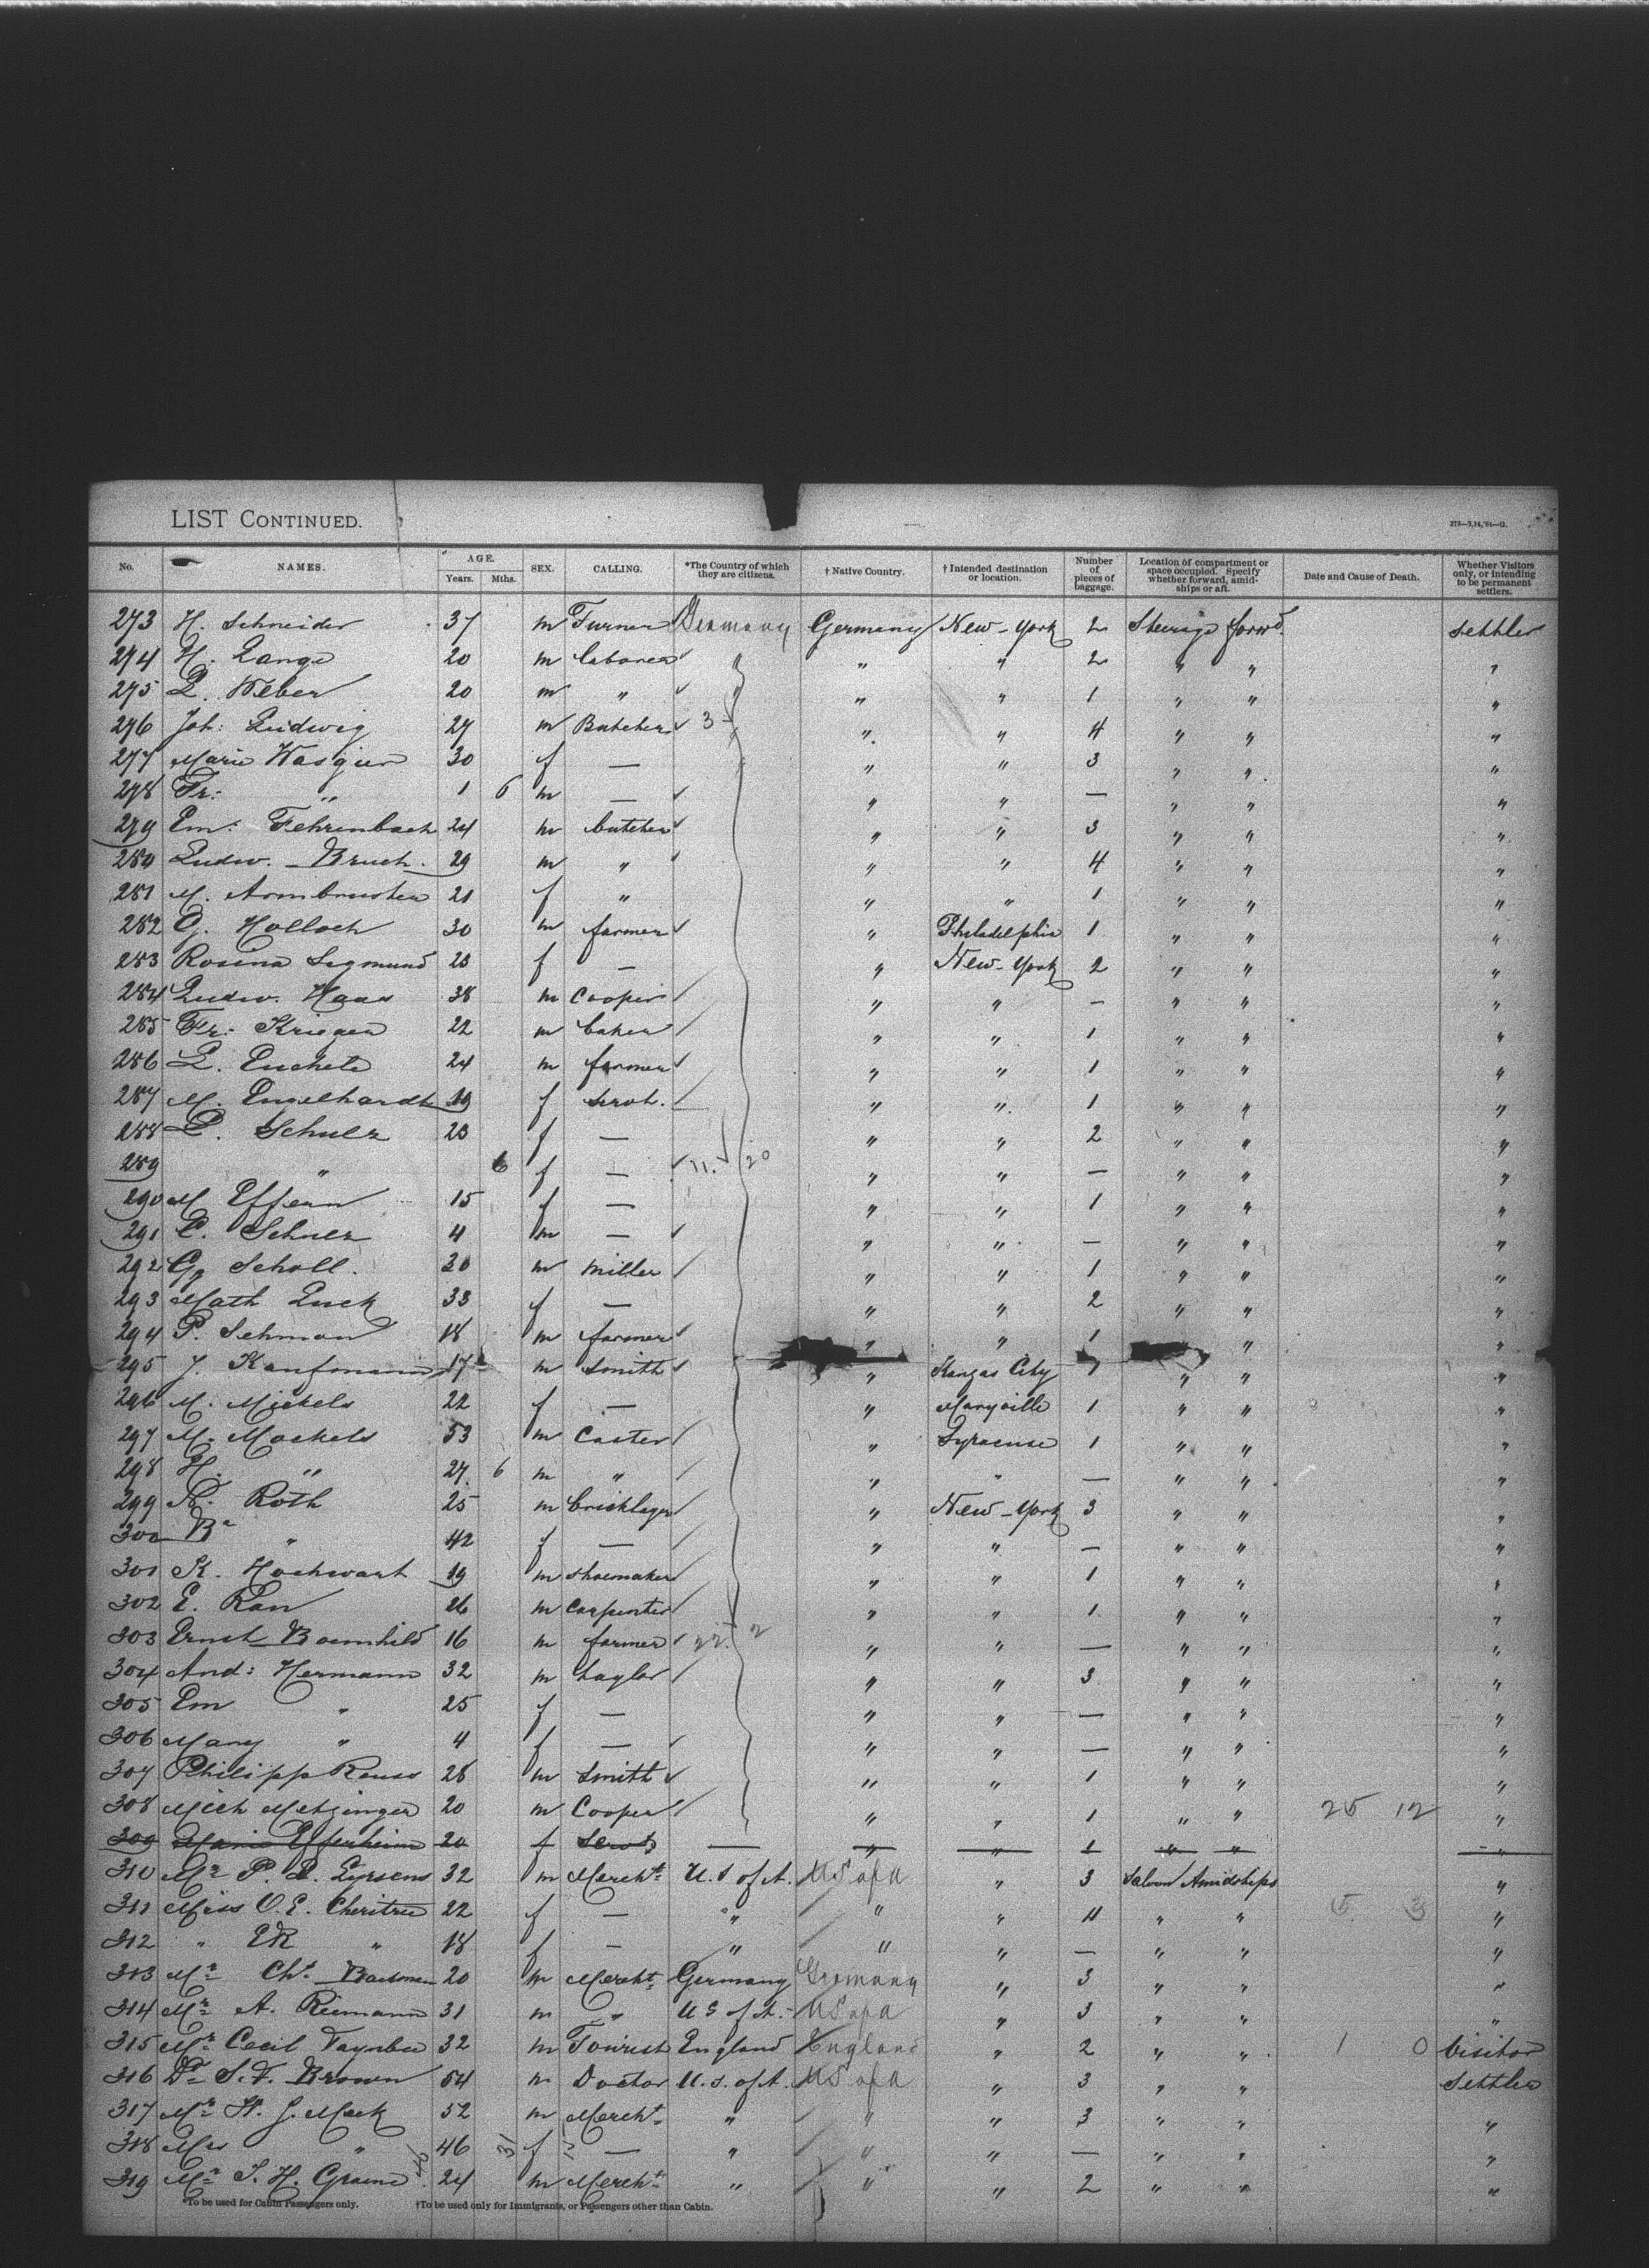 LIST CONTINUED.
273—3,14,'84—G.
No. NAMES. AGE. Years. Mths. SEX. CALLING. *The Country of which they are citizens. † Native Country. † Intended destination or location. Number of pieces of baggage. Location of compartment or space occupied. Specify whether forward, amidships or aft. Date and Cause of Death. Whether Visitors only, or intending to be permanent settlers.
273 H. Schneider 37 m Turner Germany Germany New-York 2 Steerage forwd. settler
274 H. Lange 20 m laborer " " " 2 " " "
275 L. Weber 20 m " " " " 1 " " "
276 Joh: Ludwig 27 m Butcher 3 " " 4 " " "
277 Marie 30 f — " " 3 " " "
278 Fr: " 1 6 m — " " — " " "
279 Em: Fehrenbach 24 m butcher " " 3 " " "
280 Ludw. Bruch. 29 m " " " 4 " " "
281 M. Armbruster 21 f " " " 1 " " "
282 G. Holloch 30 m farmer " Philadelphia 1 " " "
283 Rosina Sigmund 23 f — " New-York 2 " " "
284 Ludw. Haas 38 m Cooper " " — " " "
285 Fr: Krieger 22 m baker " " 1 " " "
286 L. 24 m farmer " " 1 " " "
287 M. Engelhardt 19 f servt. " " 1 " " "
288 L. Schulz 23 f — " " 2 " " "
289 " 6 f — 11. 20 " " — " " "
290 M Effern 15 f — " " 1 " " "
291 C. Schulz 4 m — " " — " " "
292 Gg Scholl. 30 m miller " " 1 " " "
293 Math Luck 33 f — " " 2 " " "
294 P. Sehmon 18 m farmer " " 1 " "
295 J. Kaufmann 17 m smith " Kansas City 1 " " "
296 M. Mickels 22 f — " Maryville 1 " " "
297 M. Mockels 53 m Caster " Syracuse 1 " " "
298 H. " 27 6 m " " " — " " "
299 N. Roth 25 m bricklayer " New-York 3 " " "
300 Br " 42 f — " " — " " "
301 K. Hochwart 19 m shoemaker " " 1 " " "
302 E. Rau 26 m carpenter " " 1 " " "
303 Ernst Boemhild 16 m farmer 22 2 " " — " " "
304 And: Hermann 32 m taylor " " 3 " " "
305 Em " 25 f — " " — " " "
306 Mary " 4 f — " " — " " "
307 Philipp Reuss 28 m smith " " 1 " " "
308 Mich Metzinger 20 m Cooper " " 1 " " 25 12 "
309 Maria Effenheim 20 f Servt — " " 1 " " "
310 Mr P. L. 32 m Mercht. U.S of A. US of A " 3 Saloon Amidships "
311 Miss O. E. Cheritree 22 f — " " " 11 " " 5 3 "
312 " " 18 f — " " " — " " "
313 Mr Chs. 20 m Mercht. Germany Germany " 3 " " "
314 Mr A. Riemann 31 m " U S of A. US of A " 3 " " "
315 Mr Cecil 32 m Tourist England England " 2 " " 1 0 visitor
316 Dr S. F. Brown 54 m Doctor U.S. of A. US of A " 3 " " settler
317 Mr H. J. Mack 52 m Mercht. " " " 3 " " "
318 Mrs " 46 31 f — " " " — " " "
319 Mr S. H. 24 m Mercht. " " " 2 " " "
*To be used for Cabin Passengers only. †To be used only for Immigrants, or Passengers other than Cabin.